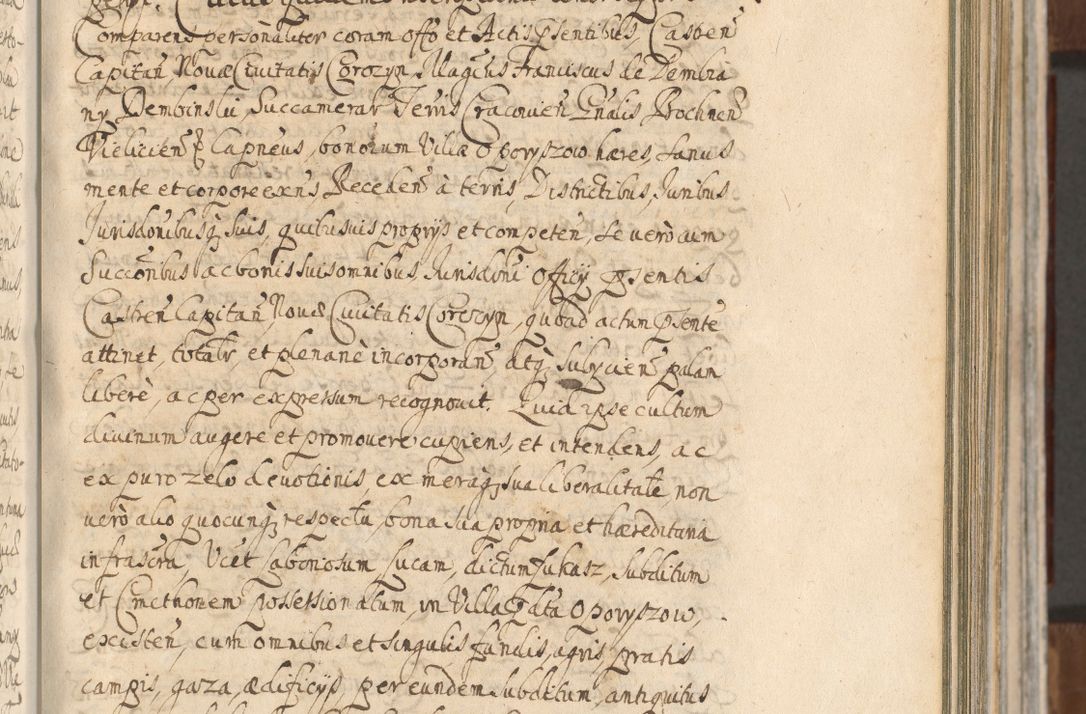 Comparens personaliter coram offo et Actis Psentibus, Castren
Capitan Novæ Civitatis Corczyn, Magcus Franciscus de Dembia
ny Dembinski, Succamerar Terris Cracovien Gnalis Bochnen
Vielicien Capneus, bonorum Villæ Opovyszow hæres, sanus
mente et corpore exns, Receden à terris, Districtibus, Juribus
Jurisdonibusq suis, quibusuis proprijs et competen, se verò cum
Succoribus ac bonis suis omnibus, Jurisdoni Officij psentis
Castren Capitan, Novæ Civitatis Corczyn, quoad actum Psente
attinet, totalr, et plenariè incorporan, atq subycien palam
liberè, ac per expressum recognovit. Quia ipse cultum
divinum augere et promovere cupiens, et intendens, ac
ex puro zelo devotionis, ex meraq sua liberalitate, non
verò alio quocunq respectu, bona sua propria et hæreditaria
infrascra, Vcet laboriosum Lucam, dictum Łukasz, subditum
et Cmethonem possessionatum, in Villa Pata Opovyszow,
existen, cum omnibus et singulis fundis, agris, pratis
campis, gaza, ædificijs, per eundem subditum, antiquitus